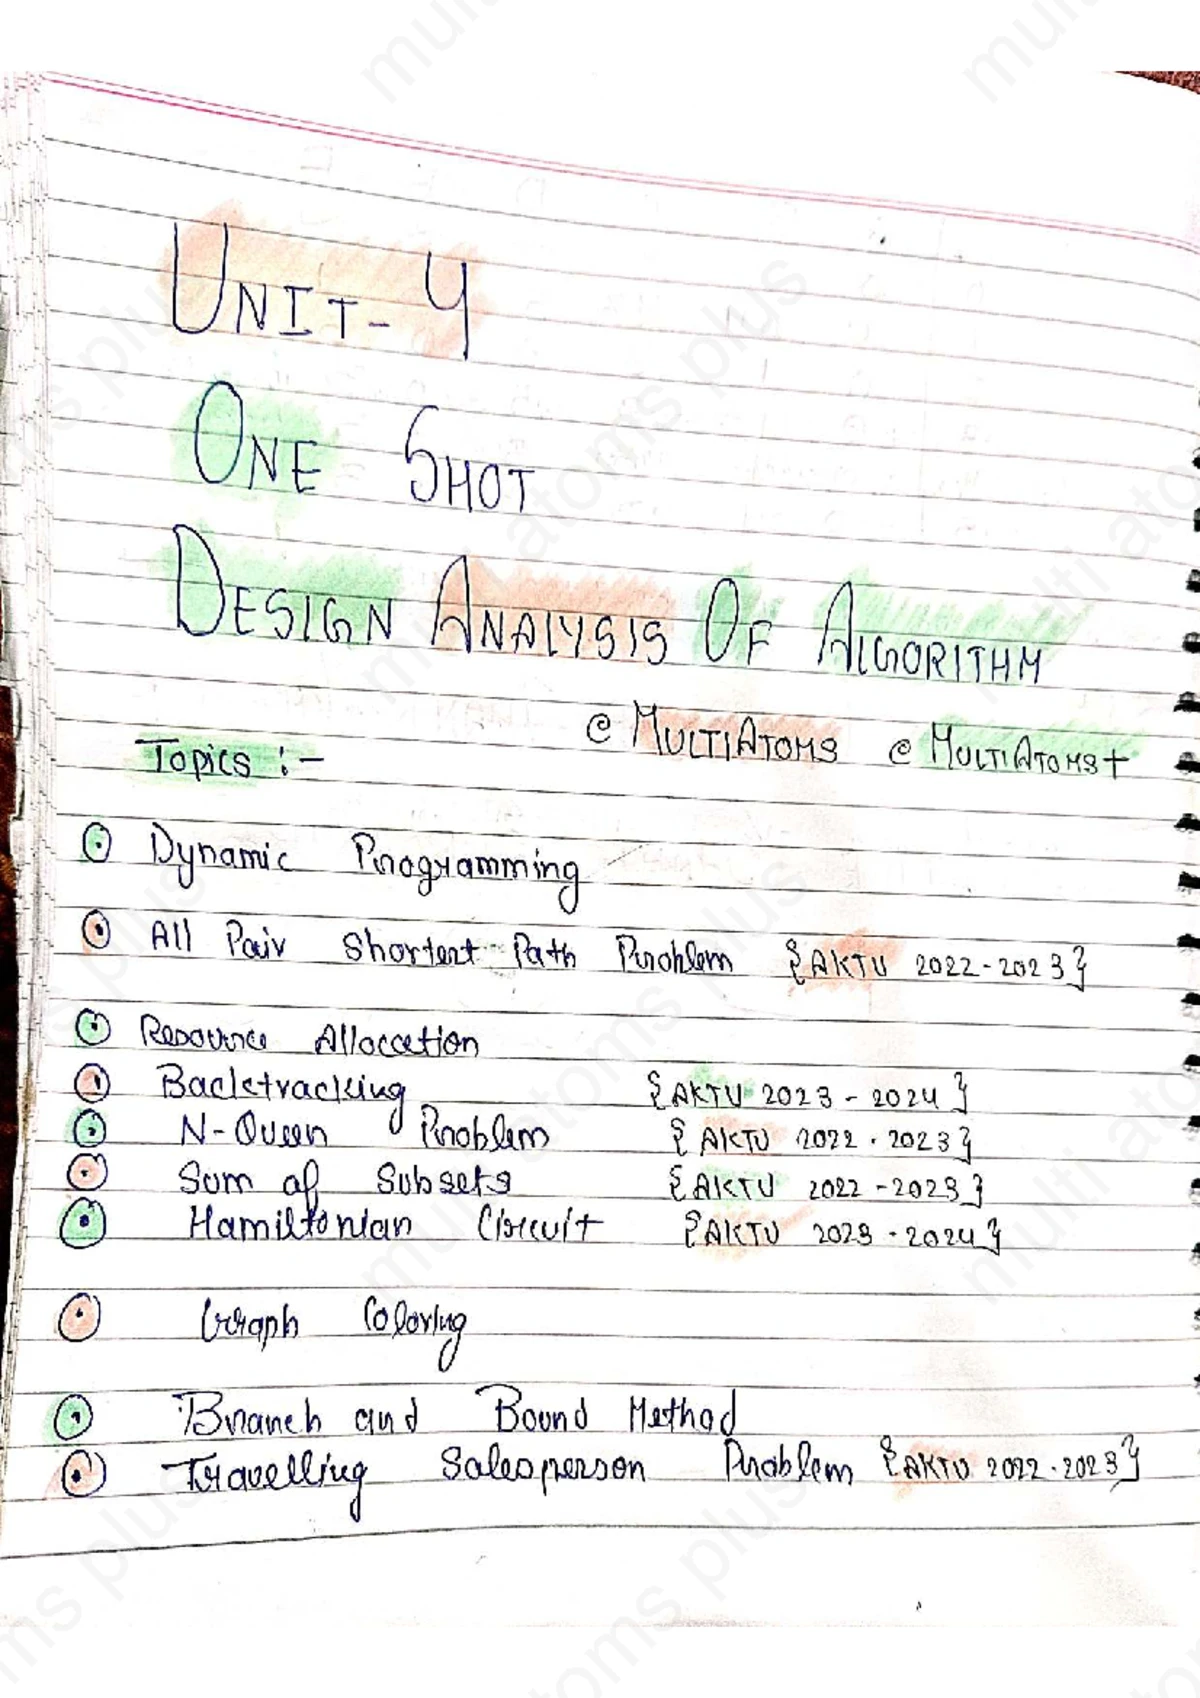 UNIT-4
ONE SHOT
DESIGN ANALYSIS OF ALGORITHM
@ MULTIATOMS @ MULTIATOMS+
Topics :-
Dynamic Programming
All Pair Shortest Path Problem {AKTU 2022-2023}
Resource Allocation
Backtracking {AKTU 2023-2024}
N-Queen Problem {AKTU 2022-2023}
Sum of Subsets {AKTU 2022-2023}
Hamiltonian Circuit {AKTU 2023-2024}
Graph Coloring
Branch and Bound Method
Travelling Salesperson Problem {AKTU 2022-2023}
multi atoms plus